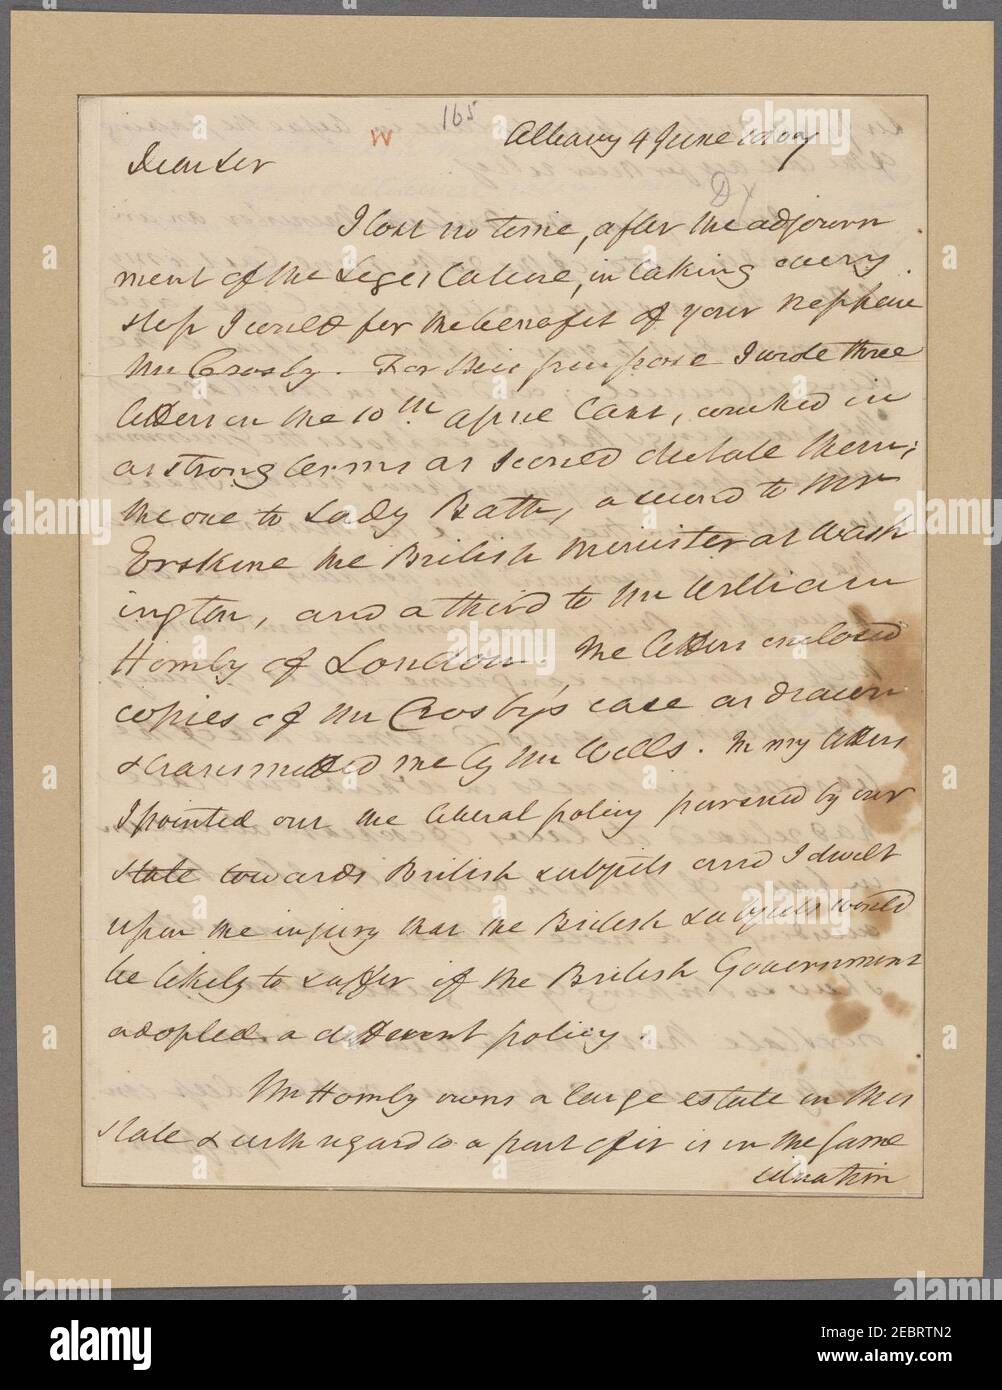 165
W
Albany 4 June 1807
Dear Sir
I lost no time, after the adjourn
ment of the Legislature, in taking every
step I could for the benefit of your Nephew
Mr Crosby. For this purpose I wrote three
letters on the 10th april last, couched in
as strong terms as I could dictate them;
the one to Lady Bath, a second to Mr
Erskine the British minister at Wash
ington, and a third to Mr William
Hornby of London. The letters enclosed
copies of Mr Crosby's case as drawn
& transmitted me by Mr Wells. In my letters
I pointed out the liberal policy pursued by our
state towards British subjects and I dwelt
upon the injury that the British subjects would
be likely to suffer if the British Government
adopted a different policy.
Mr Hornby owns a large estate in this
state & with regard to a part of it is in the same
situation
alamy
Image ID: 2EBRTN2
www.alamy.com